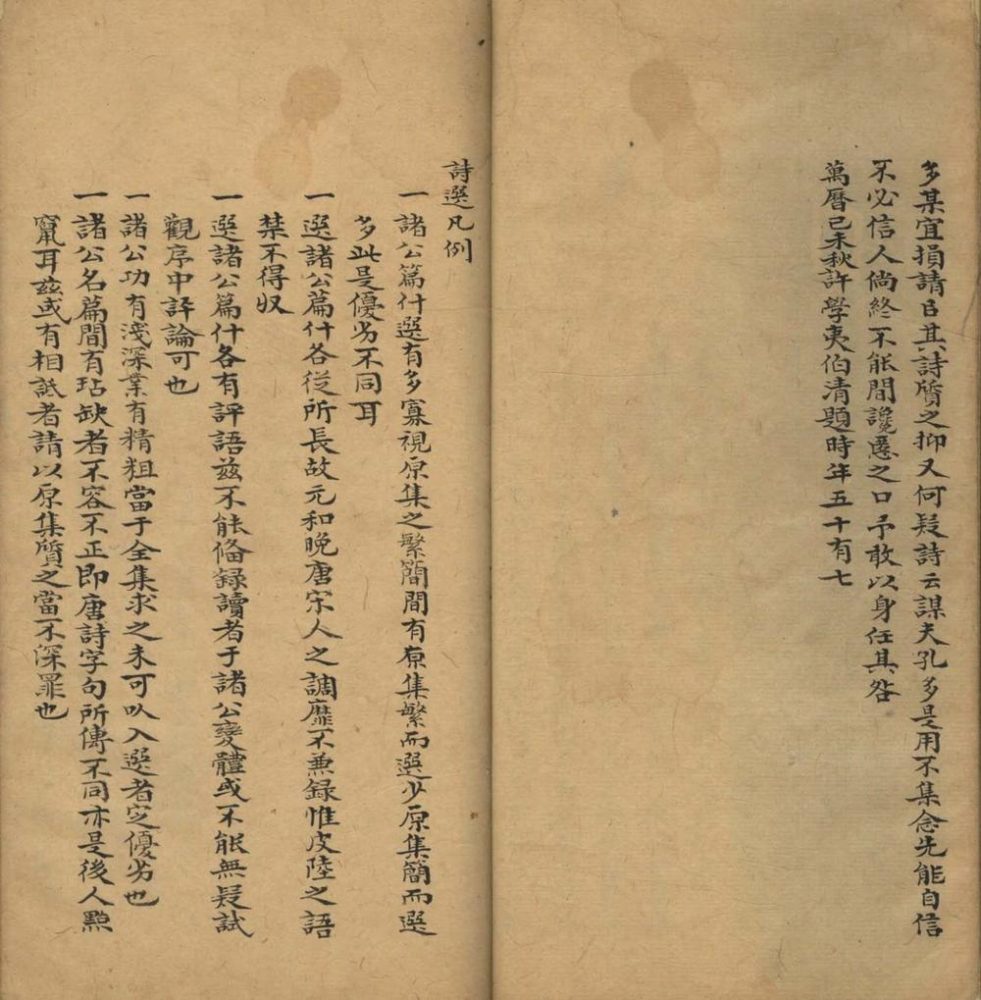 多某宜損請㠯其詩質之抑又何疑詩云謀夫孔多是用不集念先能自信
不必信人倘終不能間讒慝之口予敢以身任其咎
萬曆己未秋許學夷伯清題時年五十有七
詩選凡例
一諸公篇什選有多寡視原集之繁簡間有原集繁而選少原集簡而選
多此是優劣不同耳
一選諸公篇什各從所長故元和晚唐宋人之調靡不兼録惟皮陸之語
禁不得收
一選諸公篇什各有評語兹不能偹録讀者于諸公變體或不能無疑試
觀序中評論可也
一諸公功有淺深業有精粗當于全集求之未可以入選者定優劣也
一諸公名篇間有玷缺者不容不正即唐詩字句所傳不同亦是後人㸃
竄耳兹或有相詆者請以原集質之當不深罪也